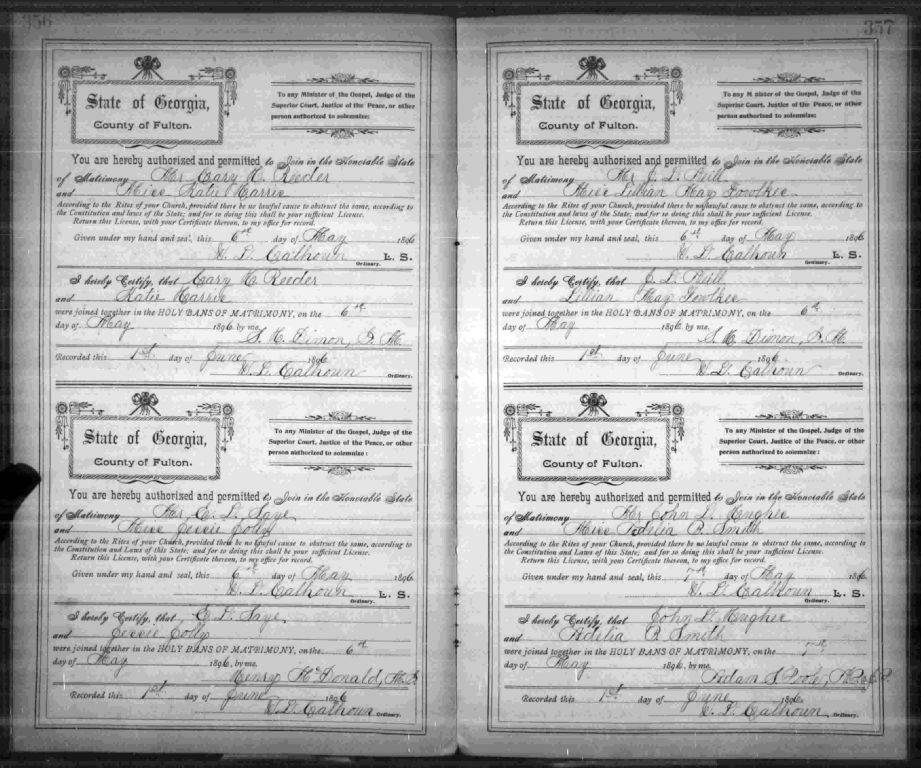 356
State of Georgia,
County of Fulton.
To any Minister of the Gospel, Judge of the
Superior Court, Justice of the Peace, or other
person authorized to solemnize:
You are hereby authorized and permitted to Join in the Honorable State
of Matrimony Mr Cary H. Reeder
and Miss Katie Harris
According to the Rites of your Church, provided there be no lawful cause to obstruct the same, according to
the Constitution and laws of the State; and for so doing this shall be your sufficient License.
Return this License, with your Certificate thereon, to my office for record.
Given under my hand and seal, this 6th day of May 1896
W. L. Calhoun L. S.
Ordinary.
I hereby Certify, that Cary H Reeder
and Katie Harris
were joined together in the HOLY BANS OF MATRIMONY, on the 6th
day of May 1896 by me.
S. H. Dimon,
Recorded this 1st day of June 1896
W. L. Calhoun
Ordinary.
State of Georgia,
County of Fulton.
To any Minister of the Gospel, Judge of the
Superior Court, Justice of the Peace, or other
person authorized to solemnize:
You are hereby authorized and permitted to Join in the Honorable State
of Matrimony Mr E. L. Saye
and Miss Jessie Jolly
According to the Rites of your Church, provided there be no lawful cause to obstruct the same, according to
the Constitution and Laws of this State; and for so doing this shall be your sufficient License.
Return this License, with your Certificate thereon, to my office for record.
Given under my hand and seal, this 6th day of May 1896
W. L. Calhoun L. S.
Ordinary.
I hereby Certify, that E L. Saye
and Jessie Jolly
were joined together in the HOLY BANS OF MATRIMONY, on the 6th
day of May 1896, by me.
Henry McDonald,
Recorded this 1st day of June 1896
W. L. Calhoun Ordinary.
357
State of Georgia,
County of Fulton.
To any Minister of the Gospel, Judge of the
Superior Court, Justice of the Peace, or other
person authorized to solemnize:
You are hereby authorized and permitted to Join in the Honorable State
of Matrimony Mr J. L.
and Miss Lillian May
According to the Rites of your Church, provided there be no lawful cause to obstruct the same, according to
the Constitution and laws of the State; and for so doing this shall be your sufficient License.
Return this License, with your Certificate thereon, to my office for record.
Given under my hand and seal, this 6th day of May 1896
W. L. Calhoun L. S.
Ordinary.
I hereby Certify, that J. L.
and Lillian May
were joined together in the HOLY BANS OF MATRIMONY, on the 6th
day of May 1896 by me.
S. H. Dimon,
Recorded this 1st day of June 1896
W. L. Calhoun Ordinary.
State of Georgia,
County of Fulton.
To any Minister of the Gospel, Judge of the
Superior Court, Justice of the Peace, or other
person authorized to solemnize:
You are hereby authorized and permitted to Join in the Honorable State
of Matrimony Mr John L.
and Miss Adelia B. Smith
According to the Rites of your Church, provided there be no lawful cause to obstruct the same, according to
the Constitution and Laws of this State; and for so doing this shall be your sufficient License.
Return this License, with your Certificate thereon, to my office for record.
Given under my hand and seal, this 7th day of May 1896
W. L. Calhoun L. S.
Ordinary.
I hereby Certify, that John L.
and Adelia B Smith
were joined together in the HOLY BANS OF MATRIMONY, on the 7th
day of May 1896, by me.
Adam S Poole,
Recorded this 1st day of June 1896
W. L. Calhoun, Ordinary.